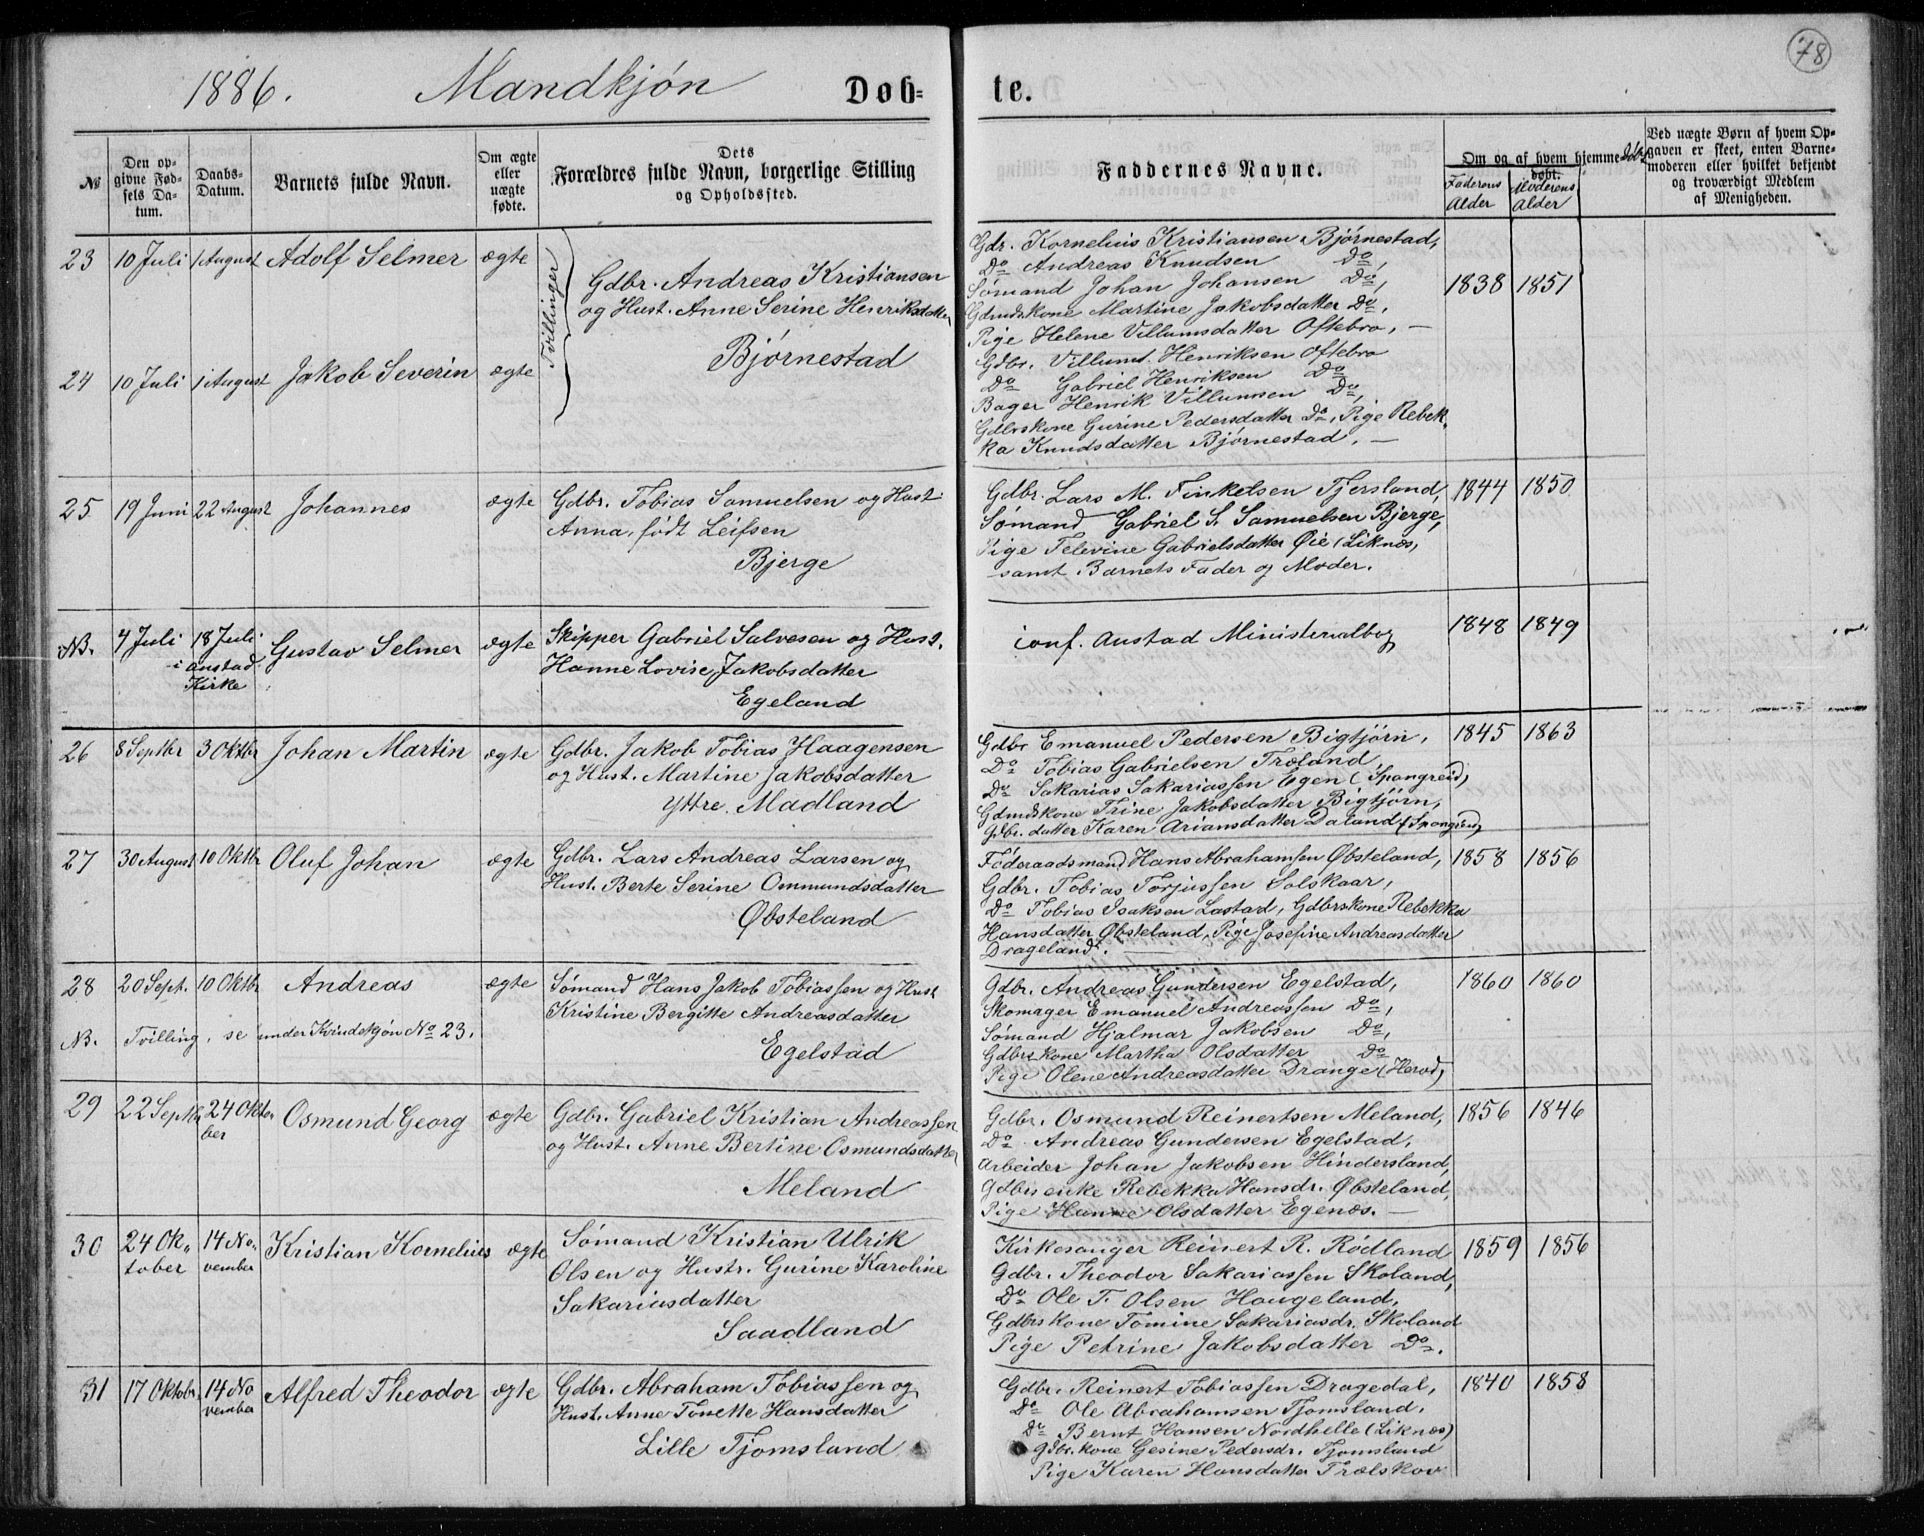 78
1886. Mandkjøn Døb= te.
№
Den op-
givne Fød-
sels Da-
tum.
Daabs-
Datum.
Barnets fulde Navn.
Om ægte
eller
uægte
fødte.
Dets
Forældres fulde Navn, borgerlige Stilling
og Opholdssted.
Faddernes Navne.
Om og af hvem hjemmedøbt.
døbt.
Faderens
Alder
Moderens
Alder
Ved uægte Børn af hvem Op-
gaven er skeet, enten Barne-
moderen eller hvilket bekjendt
og troværdigt Medlem
af Menigheden.
23 10 Juli 1 August Adolf Selmer ægte
Tvillinger
Gdbr. Andreas Kristiansen
og Hust. Anne Serine Henriksdatter
Bjørnestad
24 10 Juli 1 August Jakob Severin ægte
Gdr. Kornelius Kristiansen Bjørnestad,
Do Andreas Knudsen Do,
Sømand Johan Johansen Do,
1838 1851
Gdmdskone Martine Jakobsdatter Do,
Pige Helene Villumsdatter Oftebro, —
Gdbr. Villum Henriksen Oftebro
Do Gabriel Henriksen Do
Bager Henrik Villumsen Do,
Gdbrskone Gurine Pedersdatter Do, Pige Rebek-
ka Knudsdatter Bjørnestad. —
25 19 Juni 22 August Johannes ægte
Gdbr. Tobias Samuelsen og Hust.
Anna, født Leifsen
Bjerge
Gdbr. Lars M. Finkelsen Tjersland,
1844 1850
Sømand Gabriel S. Samuelsen Bjerge,
Pige Televine Gabrielsdatter Øie (Liknes,
samt Barnets Fader og Moder.
NB. 4 Juli 18 Juli
i Austad
Kirke
Gustav Selmer ægte
Skipper Gabriel Salvesen og Hust.
Hanne Lovise Jakobsdatter
Egeland
conf. Austad Ministerialbog
1848 1849
26 8 Septbr 3 Oktbr Johan Martin ægte
Gdbr. Jakob Tobias Haagensen
og Hust. Martine Jakobsdatter
Yttre Madland
Gdbr Emanuel Pedersen Bigtjørn,
1845 1863
Do Tobias Gabrielsen Træland,
Do Sakarias Sakariassen Egen (Spangreid)
Gdmdskone Trine Jakobsdatter Bigtjørn,
Gdbr. datter Karen Ariansdatter Daland (Spangreid)
27 30 August 10 Oktbr Oluf Johan ægte
Gdbr. Lars Andreas Larsen og
Hust. Berte Serine Ommundsdatter
Øbsteland
Føderaadsmand Hans Abrahamsen Øbsteland,
1858 1856
Gdbr. Tobias Torjussen Solskaar,
Do Tobias Isaksen Lastad, Gdbrskone Rebekka
Hansdatter Øbsteland, Pige Josefine Andreasdatter
Drageland.
28 20 Sept. 10 Oktbr Andreas ægte
NB. Tvilling, se under Kvindekjøn No 23.
Sømand Hans Jakob Tobiassen og Hust
Kristine Bergitte Andreasdatter
Egelstad
Gdbr. Andreas Gundersen Egelstad,
1860 1860
Skomager Emanuel Andreassen Do,
Sømand Hjalmar Jakobsen Do,
Gdbrskone Martha Olsdatter Do
Pige Olene Andreasdatter Drange (Herød)
29 22 Septbr 24 Okto-
ber
Osmund Georg ægte
Gdbr. Gabriel Kristian Andreassen
og Hust. Anne Bertine Osmundsdatter
Meland
Gdbr. Osmund Reinertsen Meland,
1856 1846
Do Andreas Gundersen Egelstad,
Arbeider Johan Jakobsen Hindersland,
Gdbrs enke Rebekka Hansdr. Øbsteland,
Pige Hanne Olsdatter Egenæs. —
30 24 Ok-
tober
14 No-
vember
Kristian Kornelius ægte
Sømand Kristian Ulrik
Olsen og Hustr. Gurine Karoline
Sakariasdatter
Saadland
Kirkesanger Reinert R. Rødland
1859 1856
Gdbr. Theodor Sakariassen Skoland,
Do Ole T. Olsen Haugeland,
Gdbrskone Tomine Sakariasdr. Skoland
Pige Petrine Jakobsdatter Do.
31 17 Oktobr. 14 No
vember
Alfred Theodor ægte
Gdbr. Abraham Tobiassen og
Hust. Anne Tonette Hansdatter
Lille Tjomsland
Gdbr. Reinert Tobiassen Dragedal,
1840 1858
Do Ole Abrahamsen Tjomsland,
Do Bernt Hansen Nordhelle (Liknes)
Gdbr.kone Gesine Pedersdr. Tjomsland
Pige Karen Hansdatter Trælskov